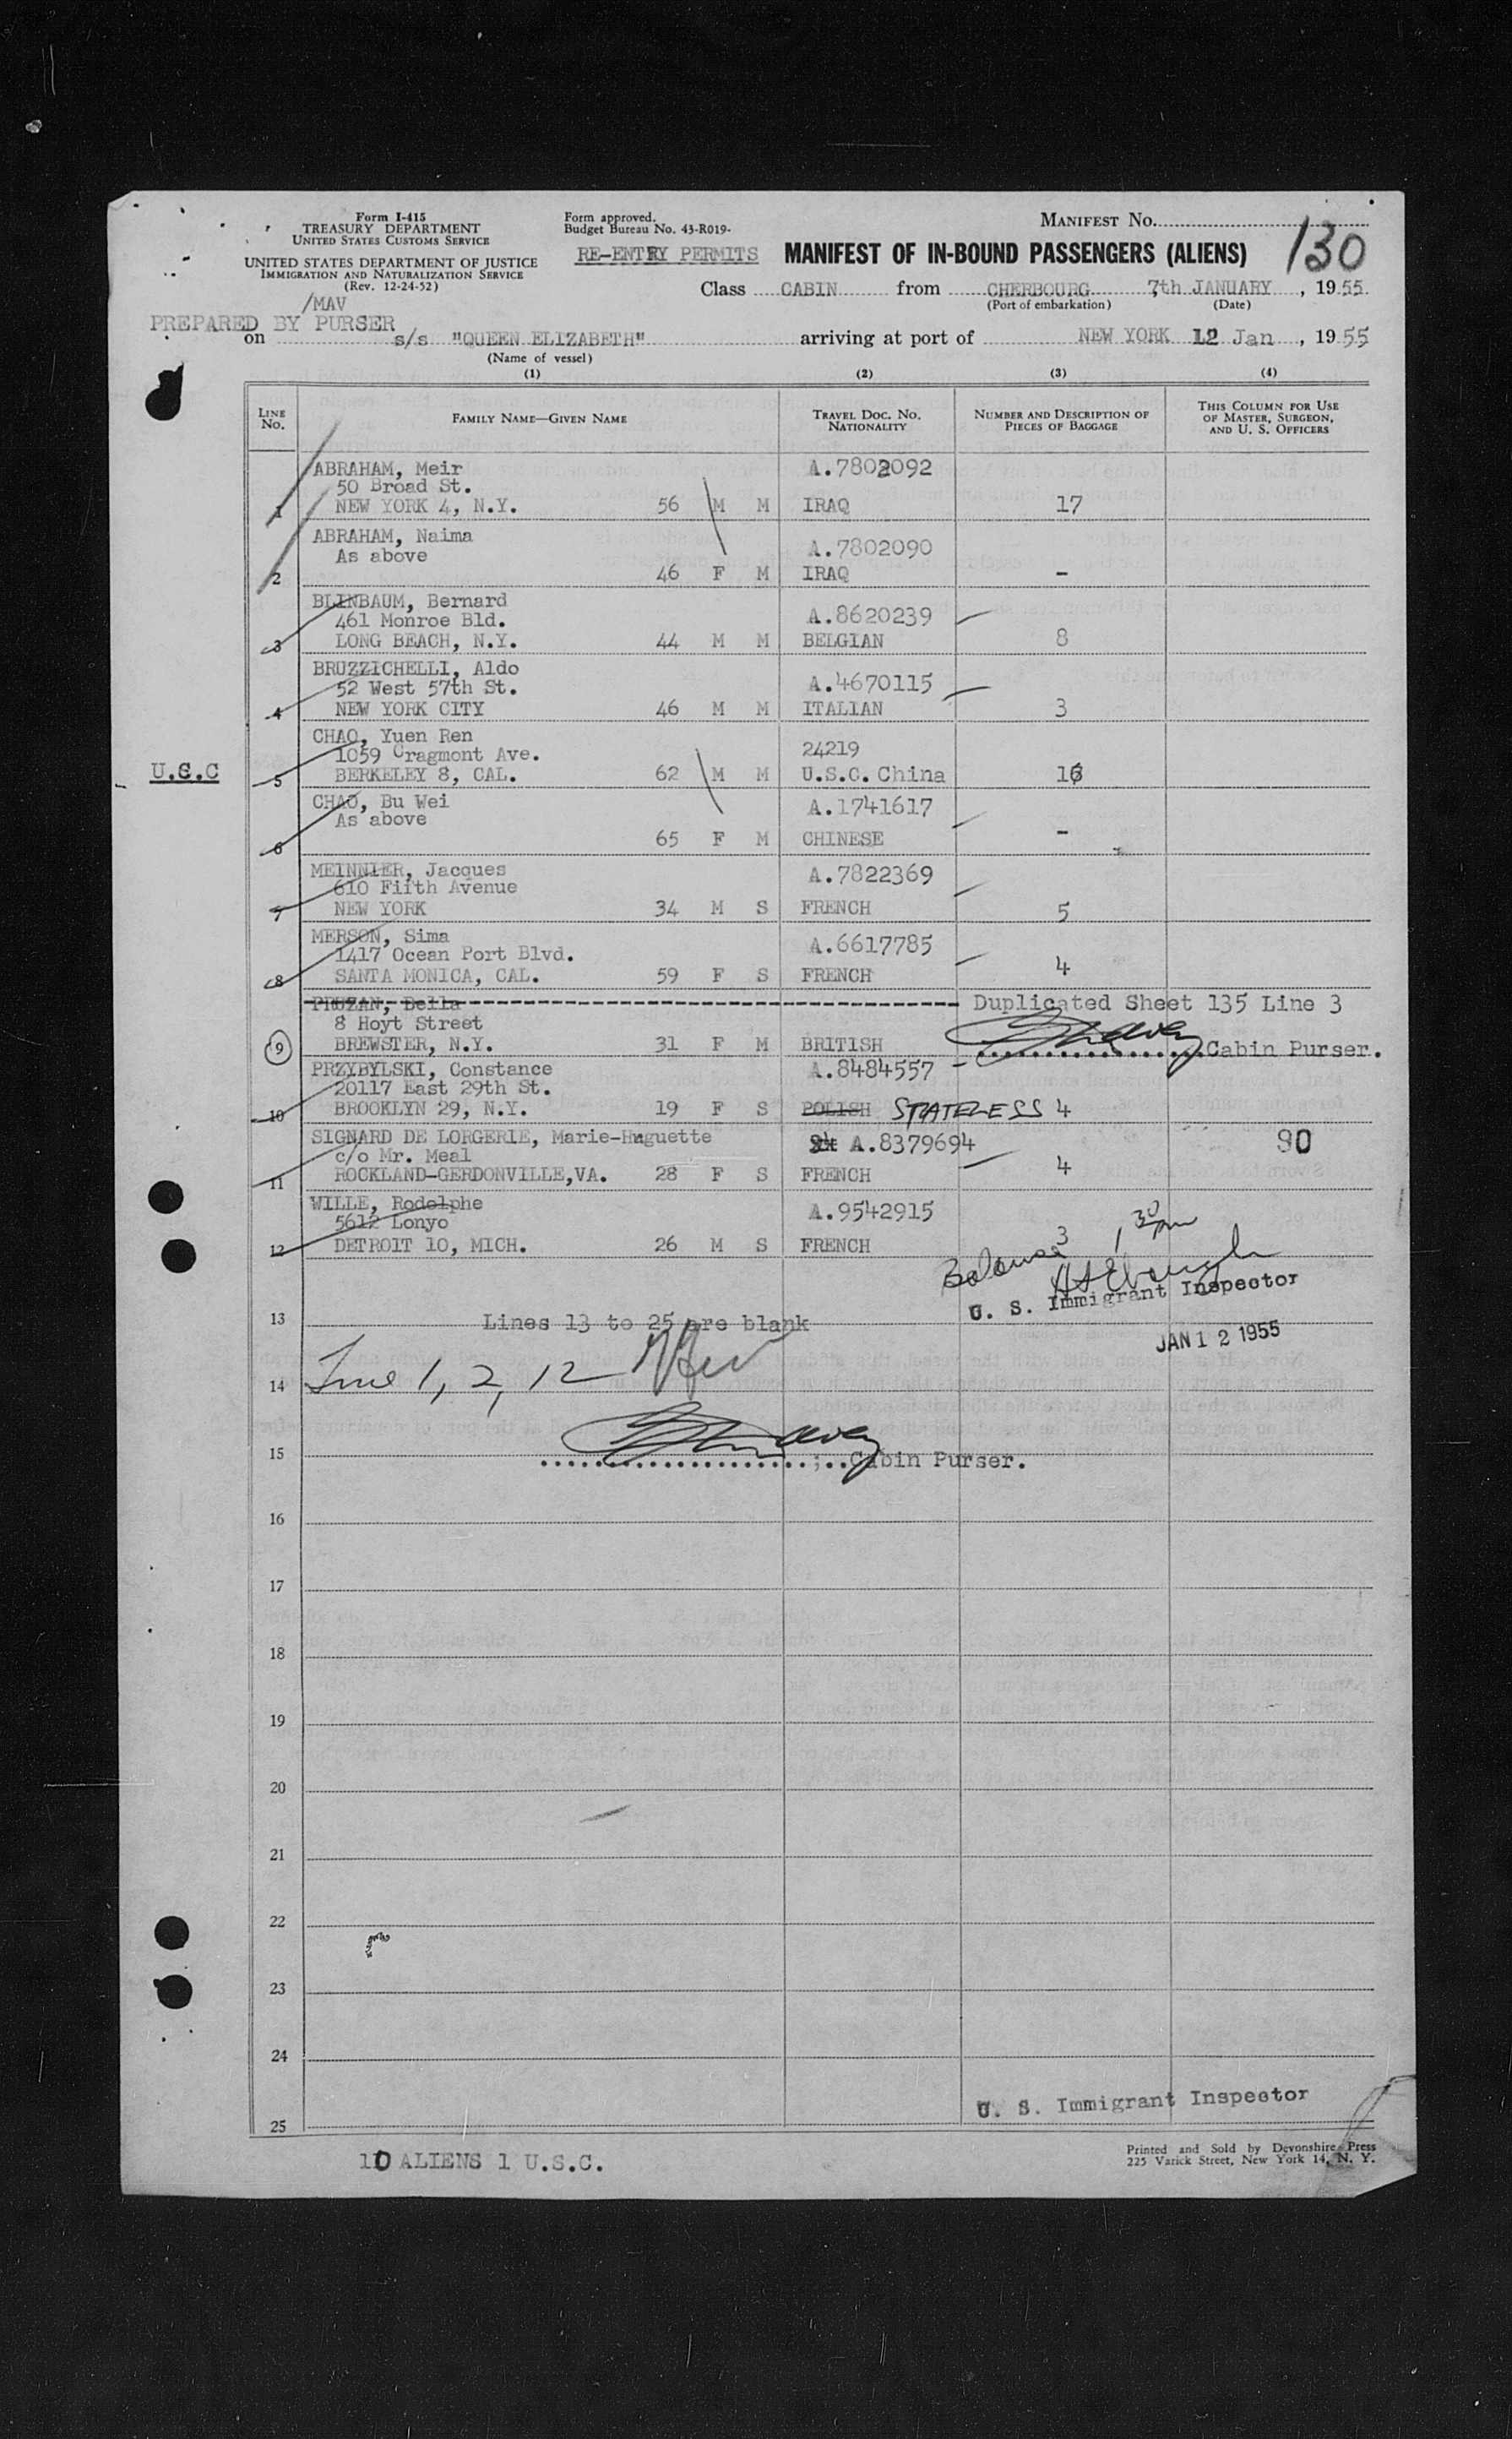 Form I-415
TREASURY DEPARTMENT
UNITED STATES CUSTOMS SERVICE
UNITED STATES DEPARTMENT OF JUSTICE
IMMIGRATION AND NATURALIZATION SERVICE
(Rev. 12-24-52)
/MAV
PREPARED BY PURSER
Form approved.
Budget Bureau No. 43-R019-
RE-ENTRY PERMITS
MANIFEST NO.
MANIFEST OF IN-BOUND PASSENGERS (ALIENS)
130
Class CABIN from CHERBOURG 7th JANUARY, 1955
(Port of embarkation) (Date)
on s/s "QUEEN ELIZABETH" arriving at port of NEW YORK 12 Jan, 1955
(Name of vessel)
(1) (2) (3) (4)
LINE NO. FAMILY NAME—GIVEN NAME TRAVEL DOC. NO. NATIONALITY NUMBER AND DESCRIPTION OF PIECES OF BAGGAGE THIS COLUMN FOR USE OF MASTER, SURGEON, AND U. S. OFFICERS
ABRAHAM, Meir A.7802092
50 Broad St.
1 NEW YORK 4, N.Y. 56 M M IRAQ 17
ABRAHAM, Naima A.7802090
As above
2 46 F M IRAQ -
BLINBAUM, Bernard A.8620239
461 Monroe Bld.
3 LONG BEACH, N.Y. 44 M M BELGIAN 8
BRUZZICHELLI, Aldo A.4670115
52 West 57th St.
4 NEW YORK CITY 46 M M ITALIAN 3
CHAO, Yuen Ren 24219
1059 Cragmont Ave.
U.S.C 5 BERKELEY 8, CAL. 62 M M U.S.C. China 16
CHAO, Bu Wei A.1741617
As above
6 65 F M CHINESE -
MEINNIER, Jacques A.7822369
610 Fifth Avenue
7 NEW YORK 34 M S FRENCH 5
MERSON, Sima A.6617785
1417 Ocean Port Blvd.
8 SANTA MONICA, CAL. 59 F S FRENCH 4
PRUZAN, Bella Duplicated Sheet 135 Line 3
8 Hoyt Street
9 BREWSTER, N.Y. 31 F M BRITISH Cabin Purser.
PRZYBYLSKI, Constance A.8484557
20117 East 29th St.
10 BROOKLYN 29, N.Y. 19 F S POLISH STATELESS 4
SIGNARD DE LORGERIE, Marie-Huguette A.8379694 90
c/o Mr. Meal
11 ROCKLAND-GERDONVILLE, VA. 28 F S FRENCH 4
WILLE, Rodolphe A.9542915
5612 Lonyo
12 DETROIT 10, MICH. 26 M S FRENCH 3
1 30 pm
U. S. Immigrant Inspector
JAN 12 1955
13 Lines 13 to 25 are blank
14 Line 1, 2, 12
15 Cabin Purser.
16
17
18
19
20
21
22
23
24
U. S. Immigrant Inspector
25
10 ALIENS 1 U.S.C.
Printed and Sold by Devonshire Press
225 Varick Street, New York 14, N. Y.